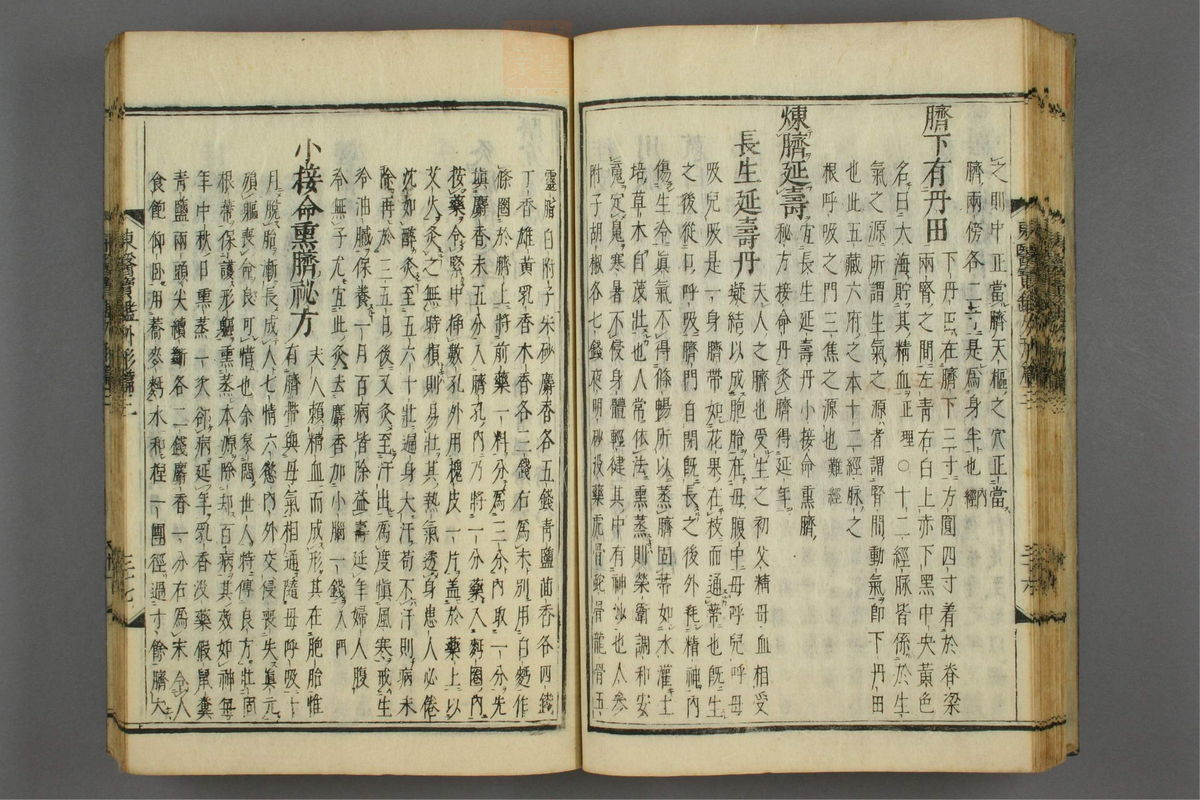 之則中正當臍天樞之穴正當
臍兩傍各二寸是爲身半也內經
臍下有丹田
下丹田在臍下三寸方圓四寸着於脊梁
兩腎之間左青右白上赤下黑中央黃色
名曰大海貯其精血正理○十二經脉皆係於生
氣之源所謂生氣之源者謂腎間動氣卽下丹田
也此五藏六府之本十二經脉之
根呼吸之門三焦之源也難經
煉臍延壽
秘方接命丹灸臍得延年
宜長生延壽丹小接命熏臍
長生延壽丹
夫人之臍也受生之初父精母血相受
凝結以成胞胎在母腹中母呼兒呼母
吸兒吸是一身臍帶如花果在枝而通蒂也旣生
之後從口呼吸臍門自閉旣長之後外耗精神內
傷生冷眞氣不得條暢所以蒸臍固蒂如水灌土
培草木自茂壯也人常依法熏蒸則榮衛調和安
魂定魄寒暑不侵身體輕健其中有神妙也人參
附子胡椒各七錢夜明砂沒藥虎骨蛇骨龍骨五
靈脂白附子朱砂麝香各五錢青鹽茴香各四錢
丁香雄黃乳香木香各二錢右爲末別用白麪作
條圈於臍上將前藥一料分爲三分內取一分先
塡麝香末五分入臍孔內乃將一分藥入麪圈內
按藥令緊中揷數孔外用槐皮一片盖於藥上以
艾火灸之無時損則易壯其熱氣透身患人必倦
沈如醉灸至五六十壯遍身大汗苟不汗則病未
除再於三五日後又灸至汗出爲度愼風寒戒生
冷油膩保養一月百病皆除益壽延年婦人腹
冷無子尤宜此灸去麝香加小腦一錢入門
小接命熏臍秘方
夫人賴精血而成形其在胞胎惟
有臍帶與母氣相通隨母呼吸十
月脫胎漸長成人七情六慾內外交侵喪失眞元
殞軀喪命良可惜也余泉問世人特傳良方壯固
根蒂保護形軀熏蒸本源除却百病其效如神每
年中秋日熏蒸一次却病延年乳香沒藥假鼠糞
青鹽兩頭尖續斷各二錢麝香一分右爲末令人
食飽仰臥用蕎麥麪水和捏一團徑過寸餘臍大
東醫寶鑑外形篇